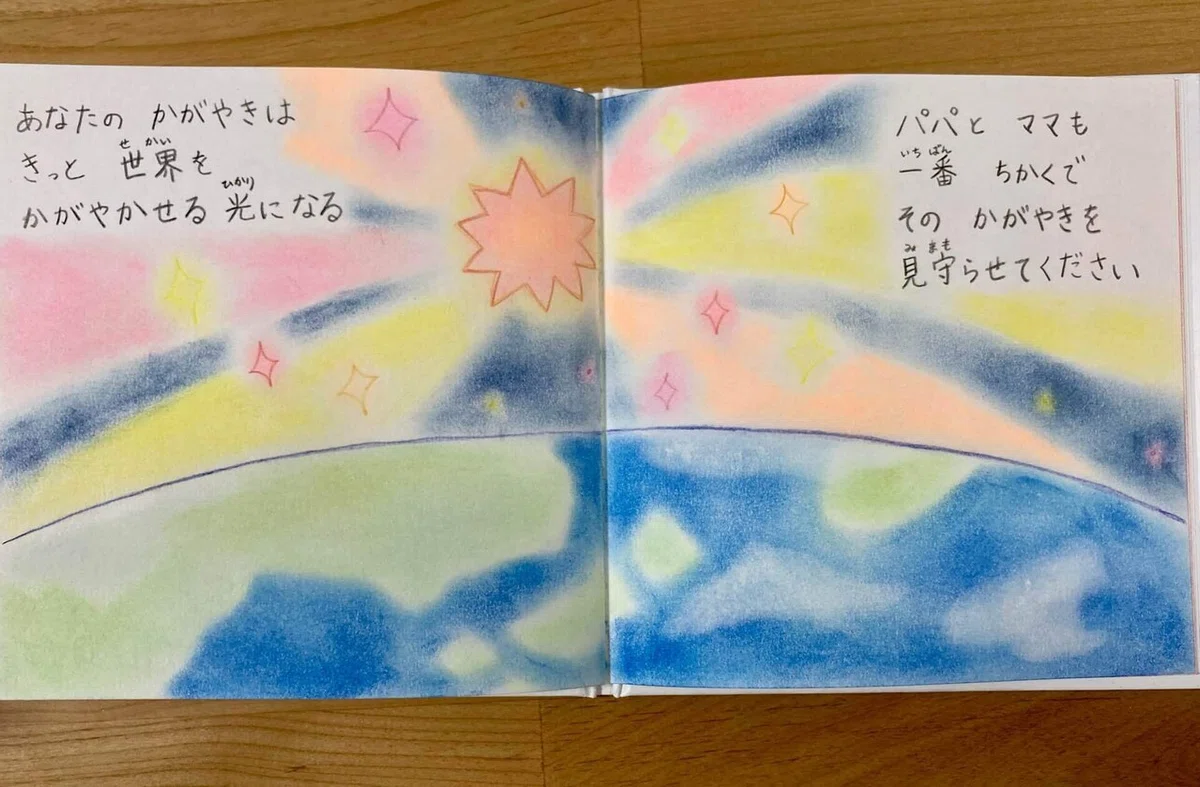 あなたの かがやきは
きっと 世界を
せかい
かがやかせる 光になる
ひかり
パパと ママも
一番 ちかくで
いちばん
その かがやきを
見守らせてください
みまも